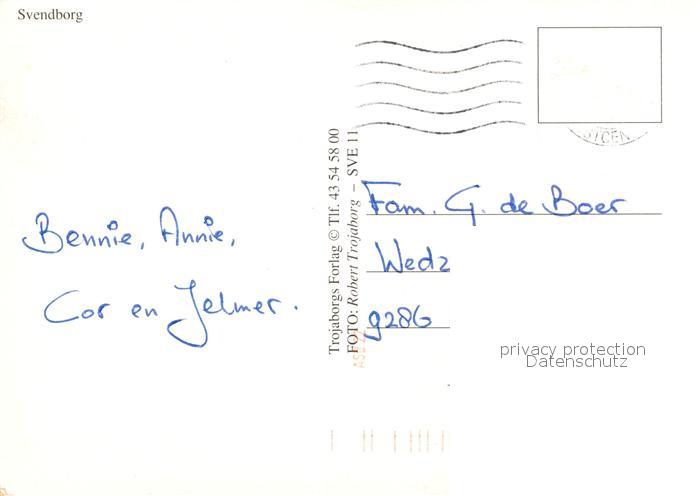 Svendborg
Bennie, Annie,
Cor en Jelmer.
Trojaborgs Forlag © Tlf. 43 54 58 00
FOTO: Robert Trojaborg – SVE 11
Fam. G. de Boer
Wedz
9286
privacy protection
Datenschutz